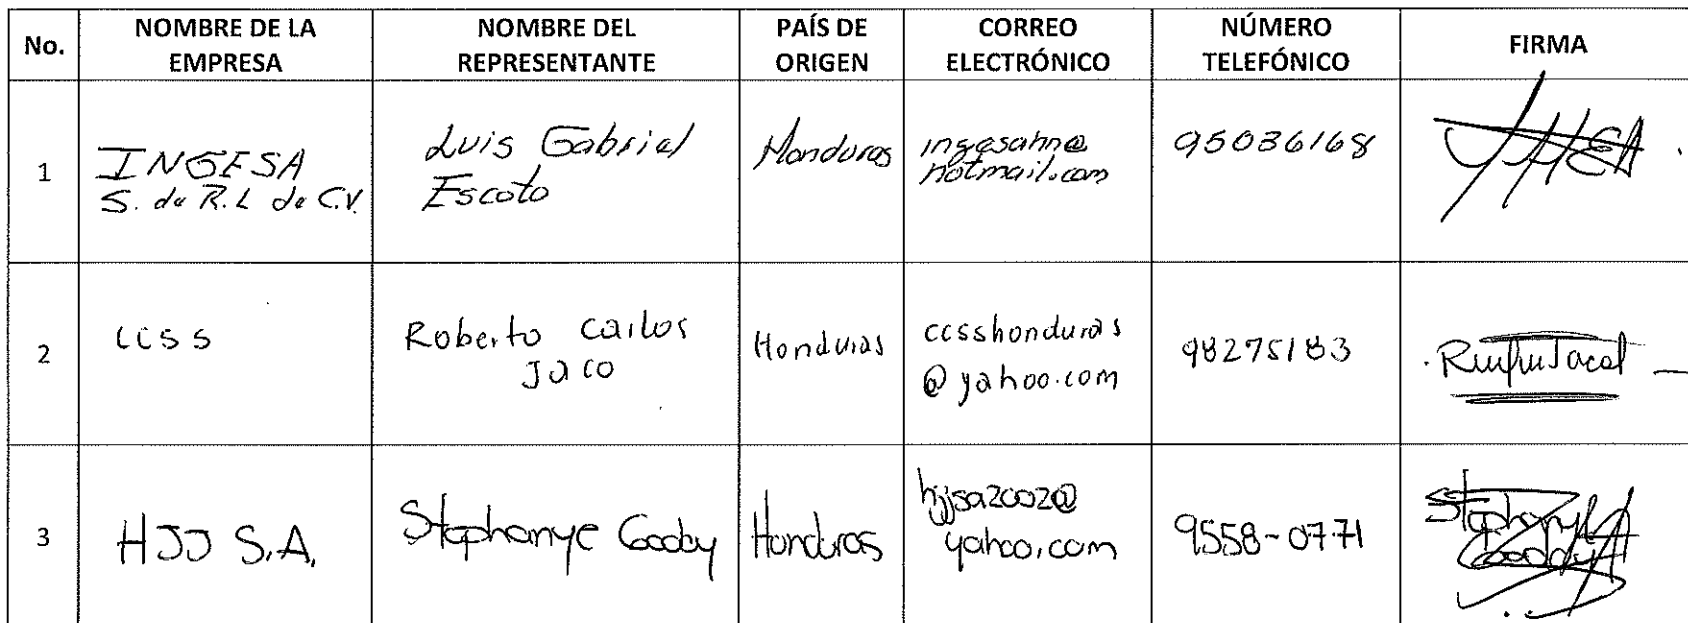 No.
NOMBRE DE LA
EMPRESA
NOMBRE DEL
REPRESENTANTE
PAÍS DE
ORIGEN
CORREO
ELECTRÓNICO
NÚMERO
TELEFÓNICO
FIRMA
1
INGESA
S. de R.L de C.V.
Luis Gabriel
Escoto
Honduras
ingesahn@
hotmail.com
95036168
2
ccss
Roberto Carlos
Jaco
Honduras
ccsshonduras
@yahoo.com
98275183
3
HJJ S.A.
Stephanye Gooby
Honduras
hjjsa2002@
yahoo.com
9558-0771
Stephany